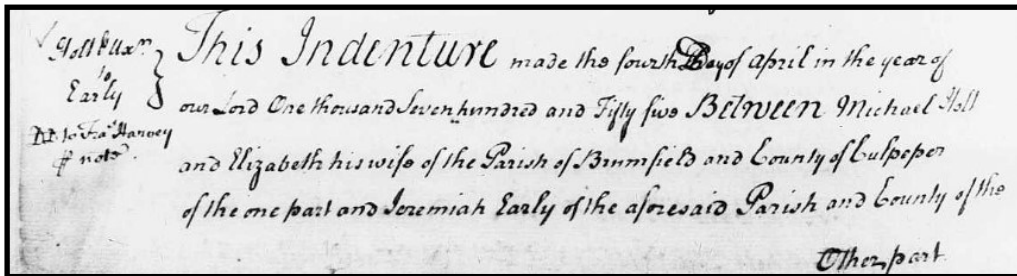 Holt & Uxr.
to
Early
DD. to Fras. Harvey
⅌ note.
This Indenture made the fourth Day of April in the year of
our Lord One thousand Seven hundred and Fifty five Between Michael Holt
and Elizabeth his wife of the Parish of Brumfield and County of Culpeper
of the one part and Jeremiah Early of the aforesaid Parish and County of the
Other part